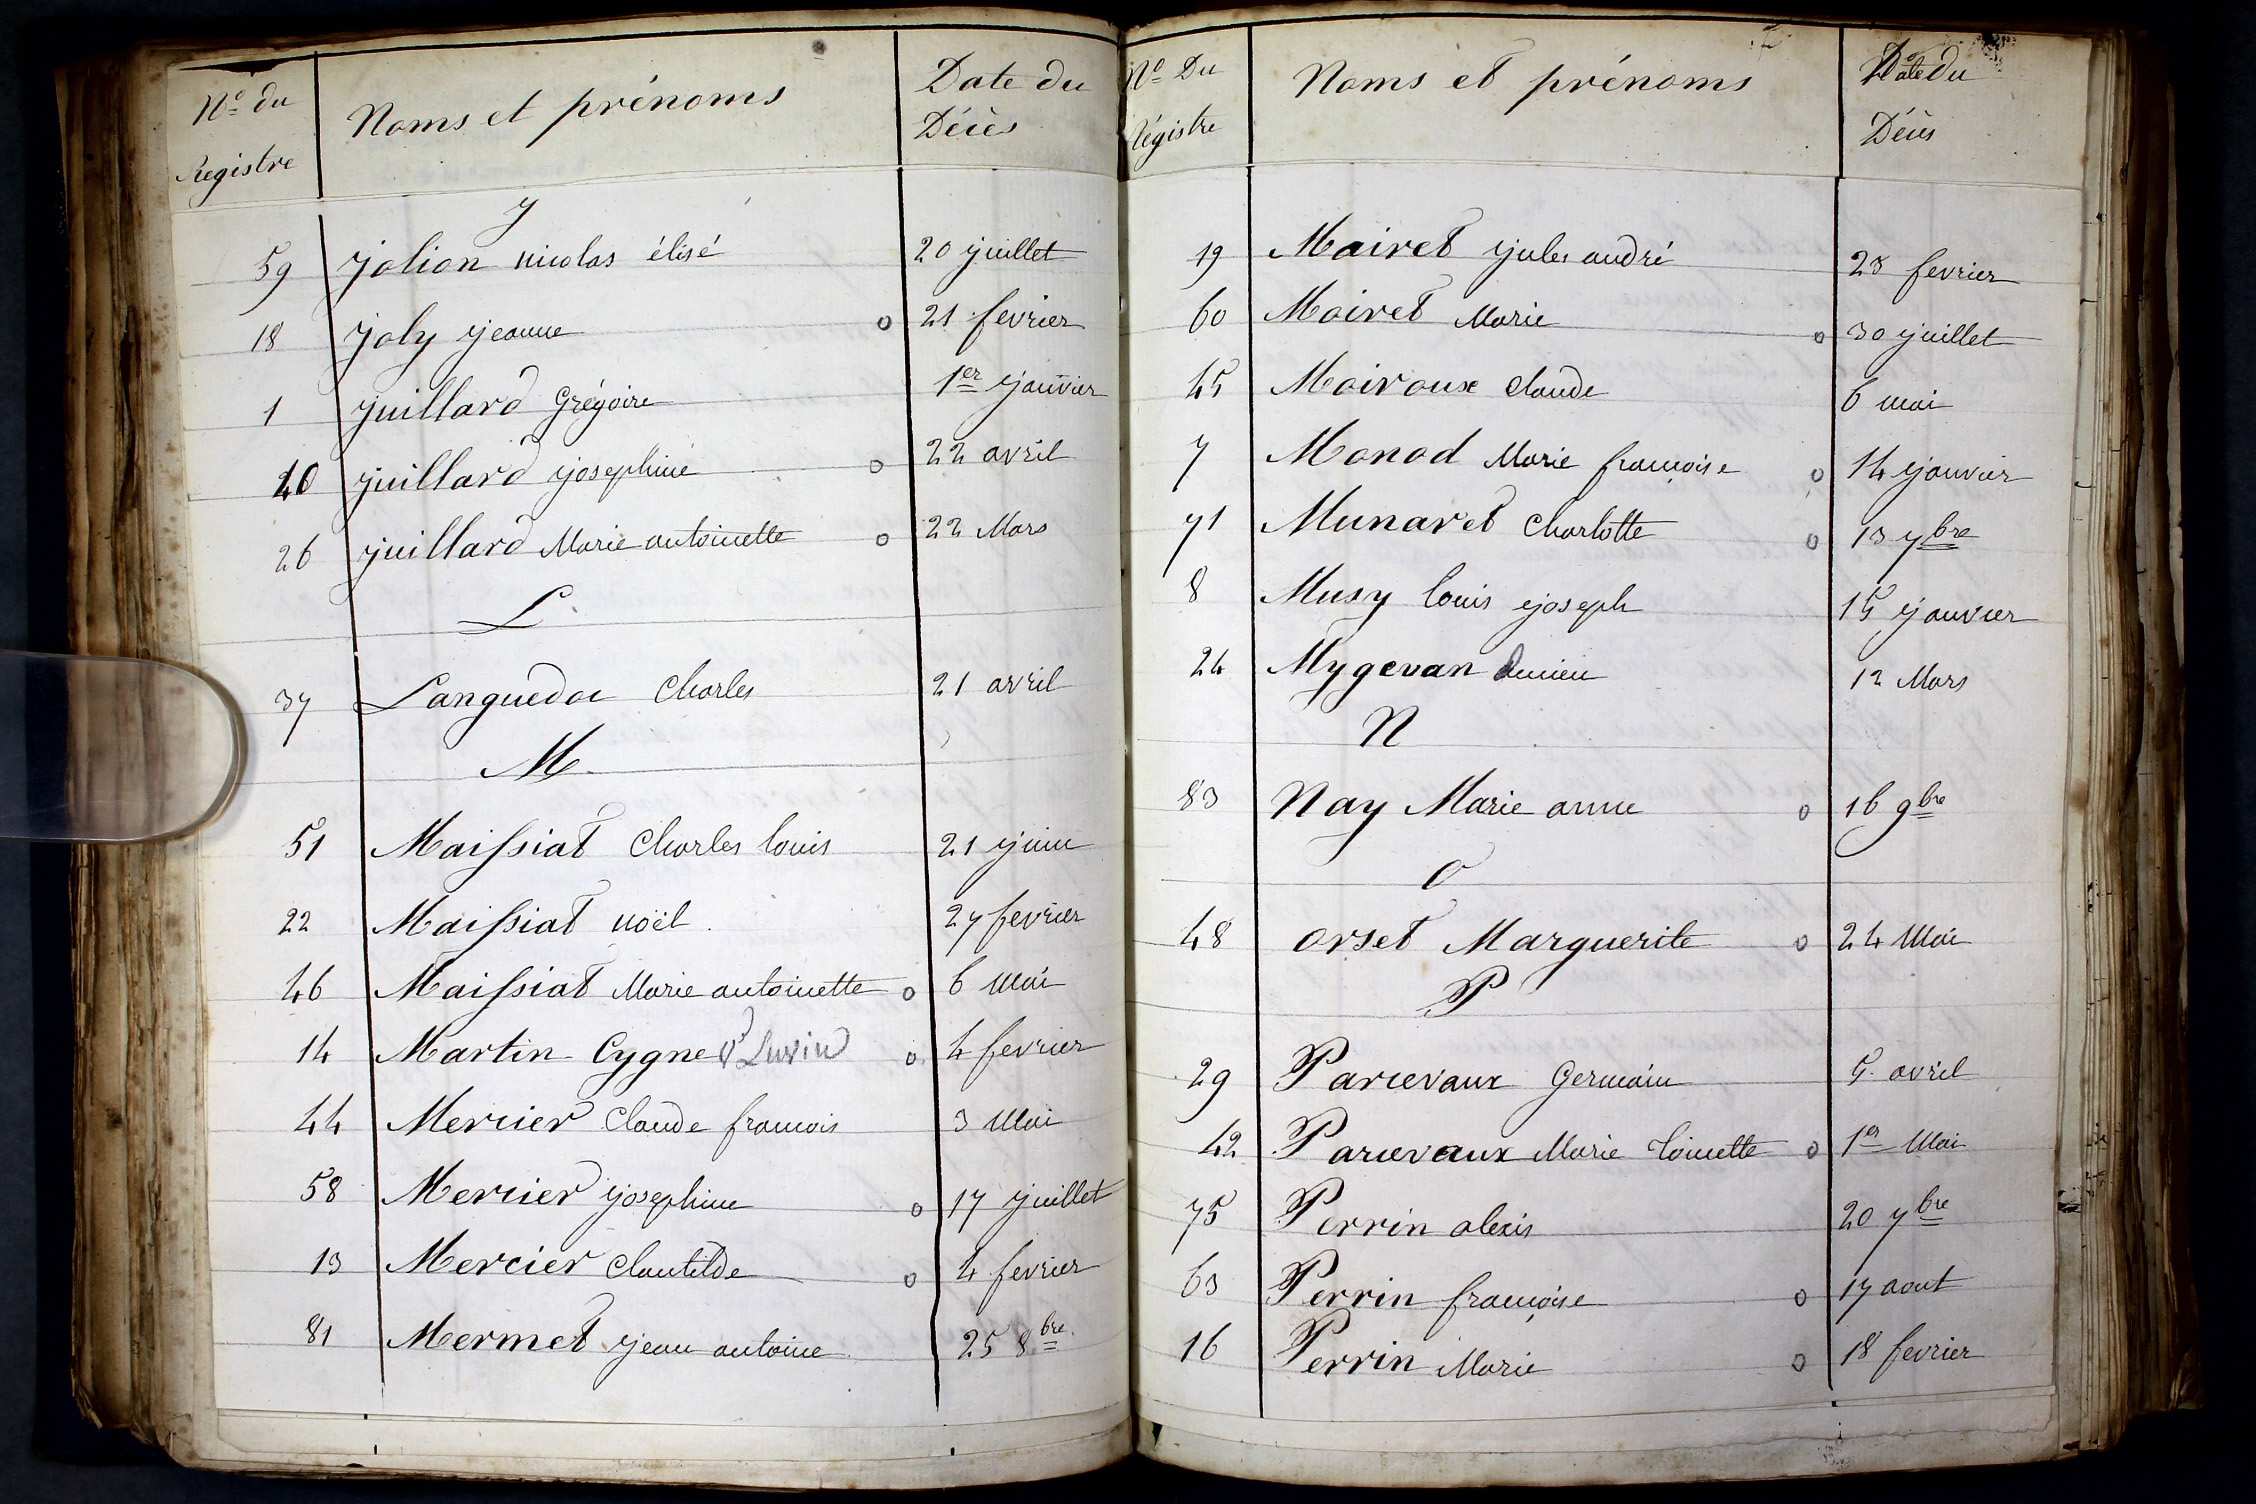 N° du Registre Noms et prénoms Date du Décès
J
59 Jolion nicolas élisé 20 juillet
18 Joly jeanne o 21 fevrier
1 juillard Grégoire 1er janvier
40 juillard josephine o 22 avril
26 juillard Marie antoinette o 22 Mars
L
37 Languedoc Charles 21 avril
M
51 Maissiat Charles louis 21 juin
22 Maissiat noël 27 fevrier
46 Maissiat Marie antoinette o 6 Mai
14 Martin Cygne o 4 fevrier
44 Mercier Claude francois 3 Mai
58 Mercier josephine o 17 juillet
13 Mercier Clautilde o 4 fevrier
81 Mermet jean antoine 25 8bre
N° Du Régistre Noms et prénoms Date du Décès
19 Mairet jules andré 23 fevrier
60 Mairet Marie o 30 juillet
45 Mairoux Claude 6 mai
7 Monod Marie françoise o 14 janvier
71 Munaret Charlotte o 13 7bre
8 Musy louis joseph 15 janvier
24 Mygevan 12 Mars
N
83 Nay Marie anne o 16 9bre
O
48 orset Marguerite o 24 Mai
P
29 Parcevaux Germain 5 avril
42 Parcevaux Marie toinette o 1er Mai
75 Perrin alexis 20 7bre
63 Perrin françoise o 17 aout
16 Perrin Marie o 18 fevrier